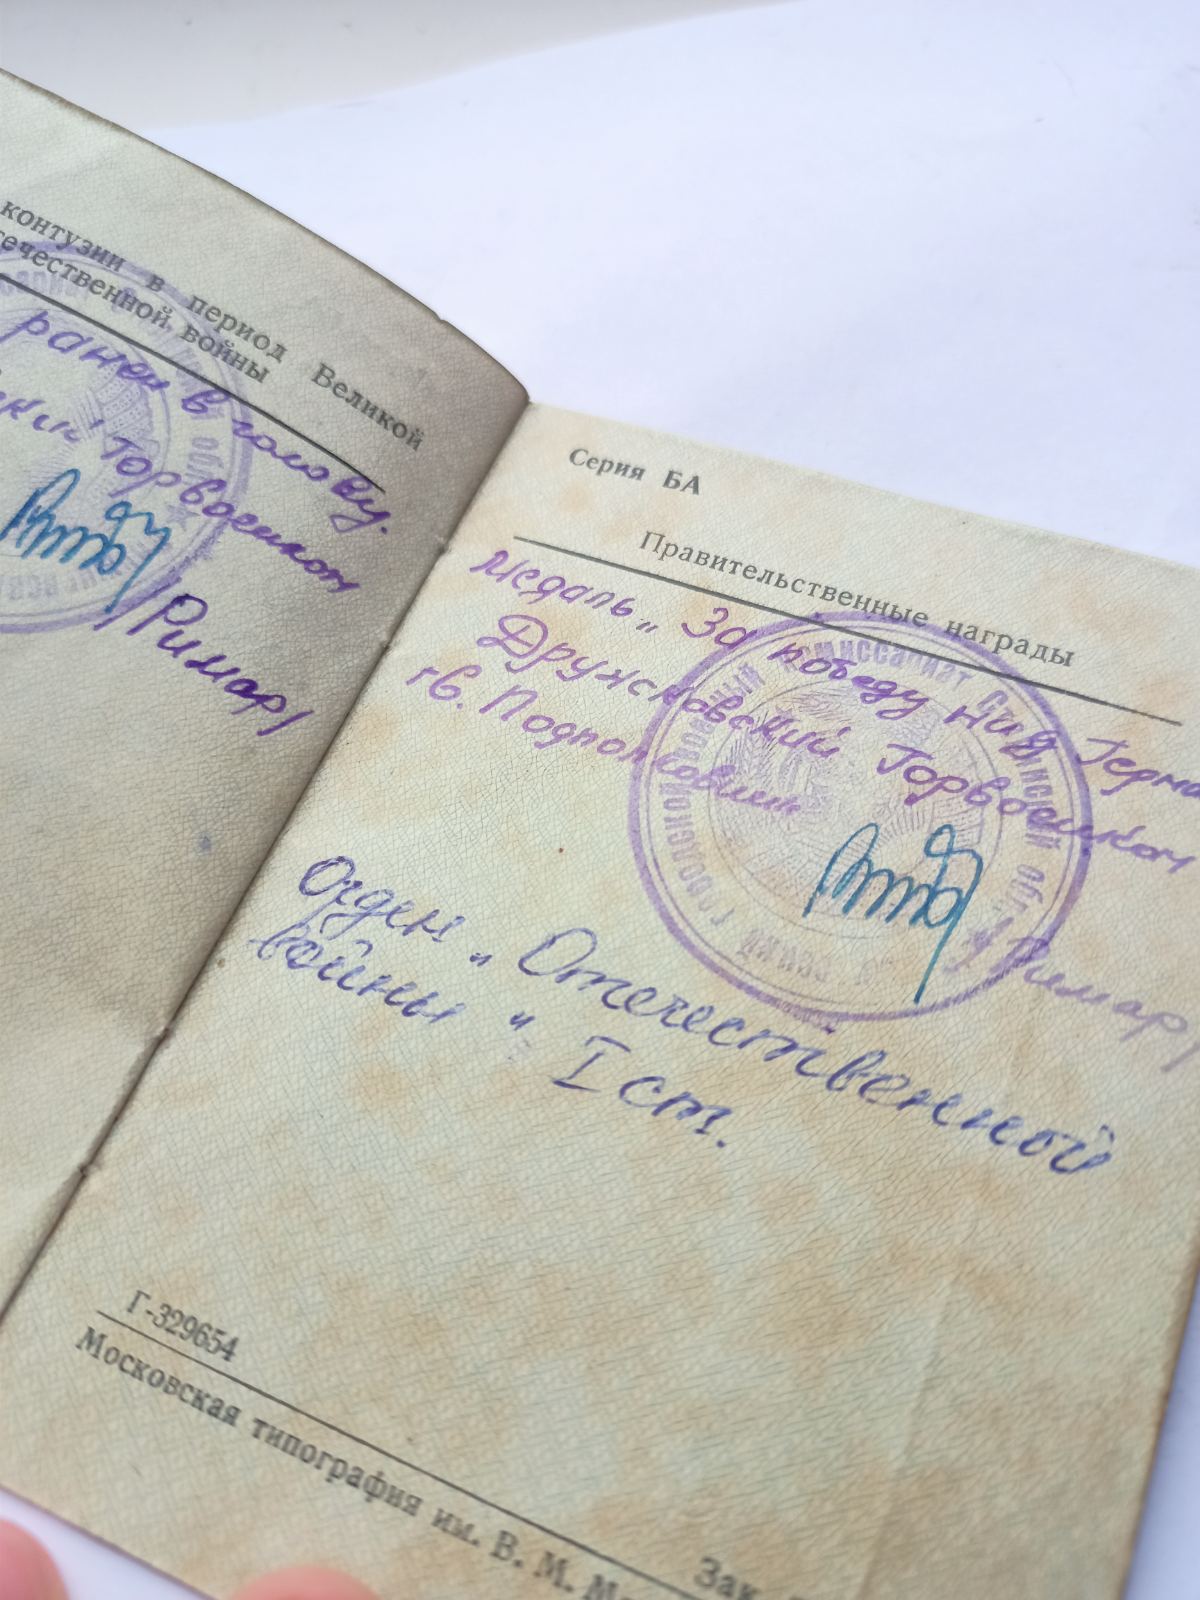 контузии в период Великой
течественной войны
ранен в голову.
Горвоенком
/Римар/
Серия БА
Правительственные награды
Медаль „За победу над Герма
Дружковский Горвоенком
гв. Подполковник
/Римар/
Орден „Отечественной
войны" I ст.
Г-329654
Московская типография им. В. М.
Зак